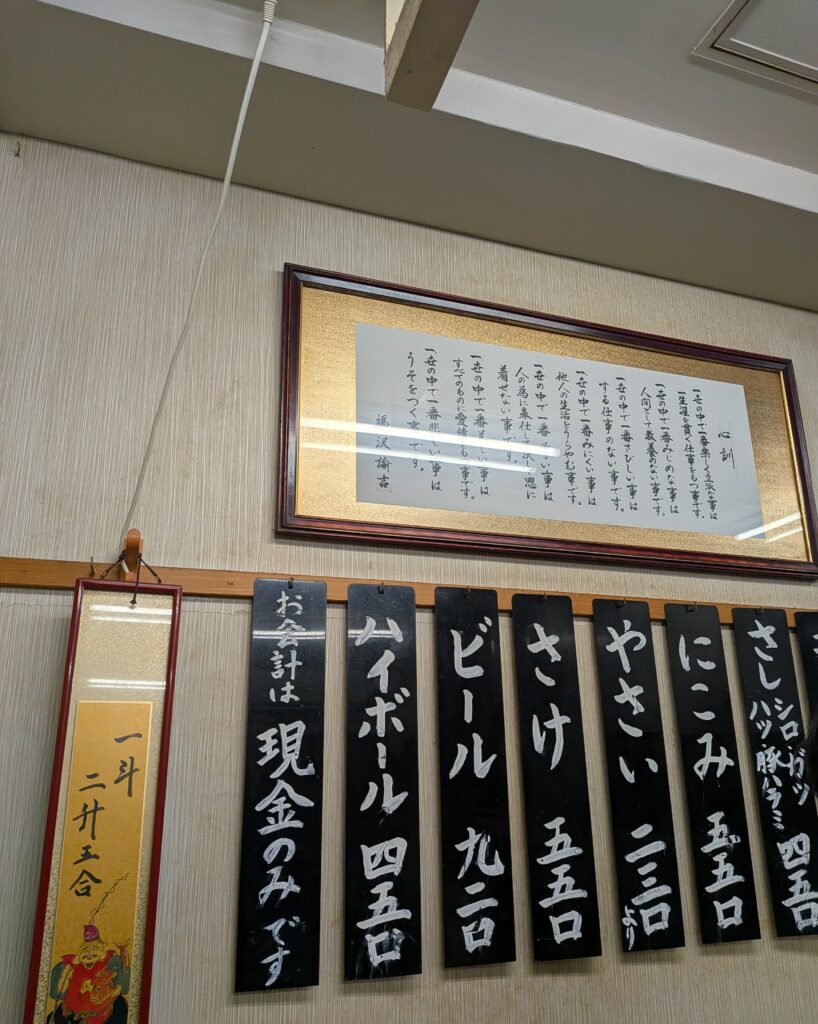 心訓
一世の中で一番楽しく立派な事は
一生涯を貫く仕事をもつ事です。
一世の中で一番みじめな事は
人間として教養のない事です。
一世の中で一番さびしい事は
する仕事のない事です。
一世の中で一番みにくい事は
他人の生活をうらやむ事です。
一世の中で一番い事は
人の為に奉仕し決して恩に
着せない事です。
一世の中で一番美しい事は
すべてのものに愛情をもつ事です。
一世の中で一番悲しい事は
うそをつく事です。
福沢諭吉
さし シロ ガツ
ハツ 豚ハラミ 四五〇
にこみ 五五〇
やさい 二三〇より
さけ 五五〇
ビール 九二〇
ハイボール 四五〇
お会計は 現金のみです
一斗
二升五合